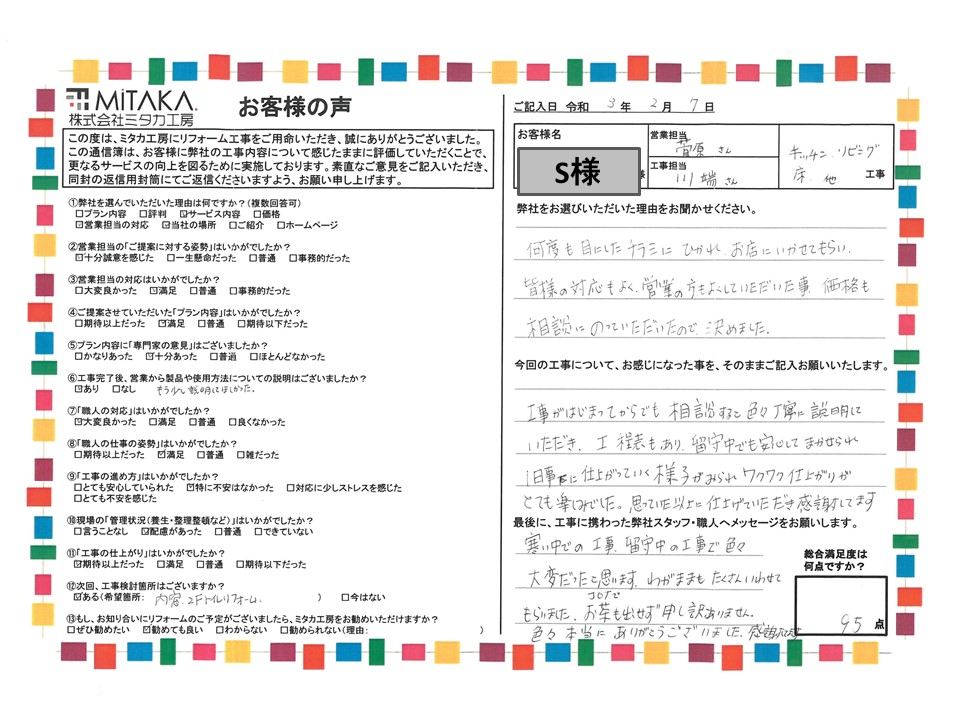 MITAKA.
株式会社ミタカ工房
お客様の声
この度は、ミタカ工房にリフォーム工事をご用命いただき、誠にありがとうございました。
この通信簿は、お客様に弊社の工事内容について感じたままに評価していただくことで、
更なるサービスの向上を図るために実施しております。素直なご意見をご記入いただき、
同封の返信用封筒にてご返信くださいますよう、お願い申し上げます。
①弊社を選んでいただいた理由は何ですか?(複数回答可)
□プラン内容 □評判 ☑サービス内容 □価格
☑営業担当の対応 ☑当社の場所 □ご紹介 □ホームページ
②営業担当の「ご提案に対する姿勢」はいかがでしたか?
☑十分誠意を感じた □一生懸命だった □普通 □事務的だった
③営業担当の対応はいかがでしたか?
□大変良かった ☑満足 □普通 □事務的だった
④ご提案させていただいた「プラン内容」はいかがでしたか?
□期待以上だった ☑満足 □普通 □期待以下だった
⑤プラン内容に「専門家の意見」はございましたか?
□かなりあった ☑十分あった □普通 □ほとんどなかった
⑥工事完了後、営業から製品や使用方法についての説明はございましたか?
☑あり □なし もう少し説明してほしかった。
⑦「職人の対応」はいかがでしたか?
☑大変良かった □満足 □普通 □良くなかった
⑧「職人の仕事の姿勢」はいかがでしたか?
□期待以上だった ☑満足 □普通 □雑だった
⑨「工事の進め方」はいかがでしたか?
□とても安心していられた ☑特に不安はなかった □対応に少しストレスを感じた
□とても不安を感じた
⑩現場の「管理状況(養生・整理整頓など)」はいかがでしたか?
□言うことなし ☑配慮があった □普通 □できていない
⑪「工事の仕上がり」はいかがでしたか?
☑期待以上だった □満足 □普通 □期待以下だった
⑫次回、工事検討箇所はございますか?
☑ある(希望箇所: 内窓.2Fトイレリフォーム. ) □今はない
⑬もし、お知り合いにリフォームのご予定がございましたら、ミタカ工房をお勧めいただけますか?
□ぜひ勧めたい ☑勧めても良い □わからない □勧められない(理由: )
ご記入日 令和 3 年 2 月 7 日
お客様名
S様
様
営業担当
菅原 さん
工事担当
川端 さん
キッチン.リビング
床.他 工事
弊社をお選びいただいた理由をお聞かせください。
何度も目にしたチラシに ひかれ お店に いかせてもらい.
皆様の対応もよく、営業の方もよくしていただいた事 価格も
相談に のっていただいたので、決めました。
今回の工事について、お感じになった事を、そのままご記入お願いいたします。
工事がはじまってからでも 相談すると色々丁寧に説明して
いただき、工程表もあり、留守中でも安心して まかせられ
1日毎に仕上がっていく様子がみられ ワクワク仕上がりが
とても楽しみでした。思っていた以上に仕上げていただき感謝してます
最後に、工事に携わった弊社スタッフ・職人へメッセージをお願いします。
寒い中での工事、留守中の工事で色々
大変だったと思います。わがままも たくさんいわせて
もらいました。コロナで お茶も出せず 申し訳ありません。
色々 本当に ありがとうございました。感謝
総合満足度は
何点ですか?
95 点